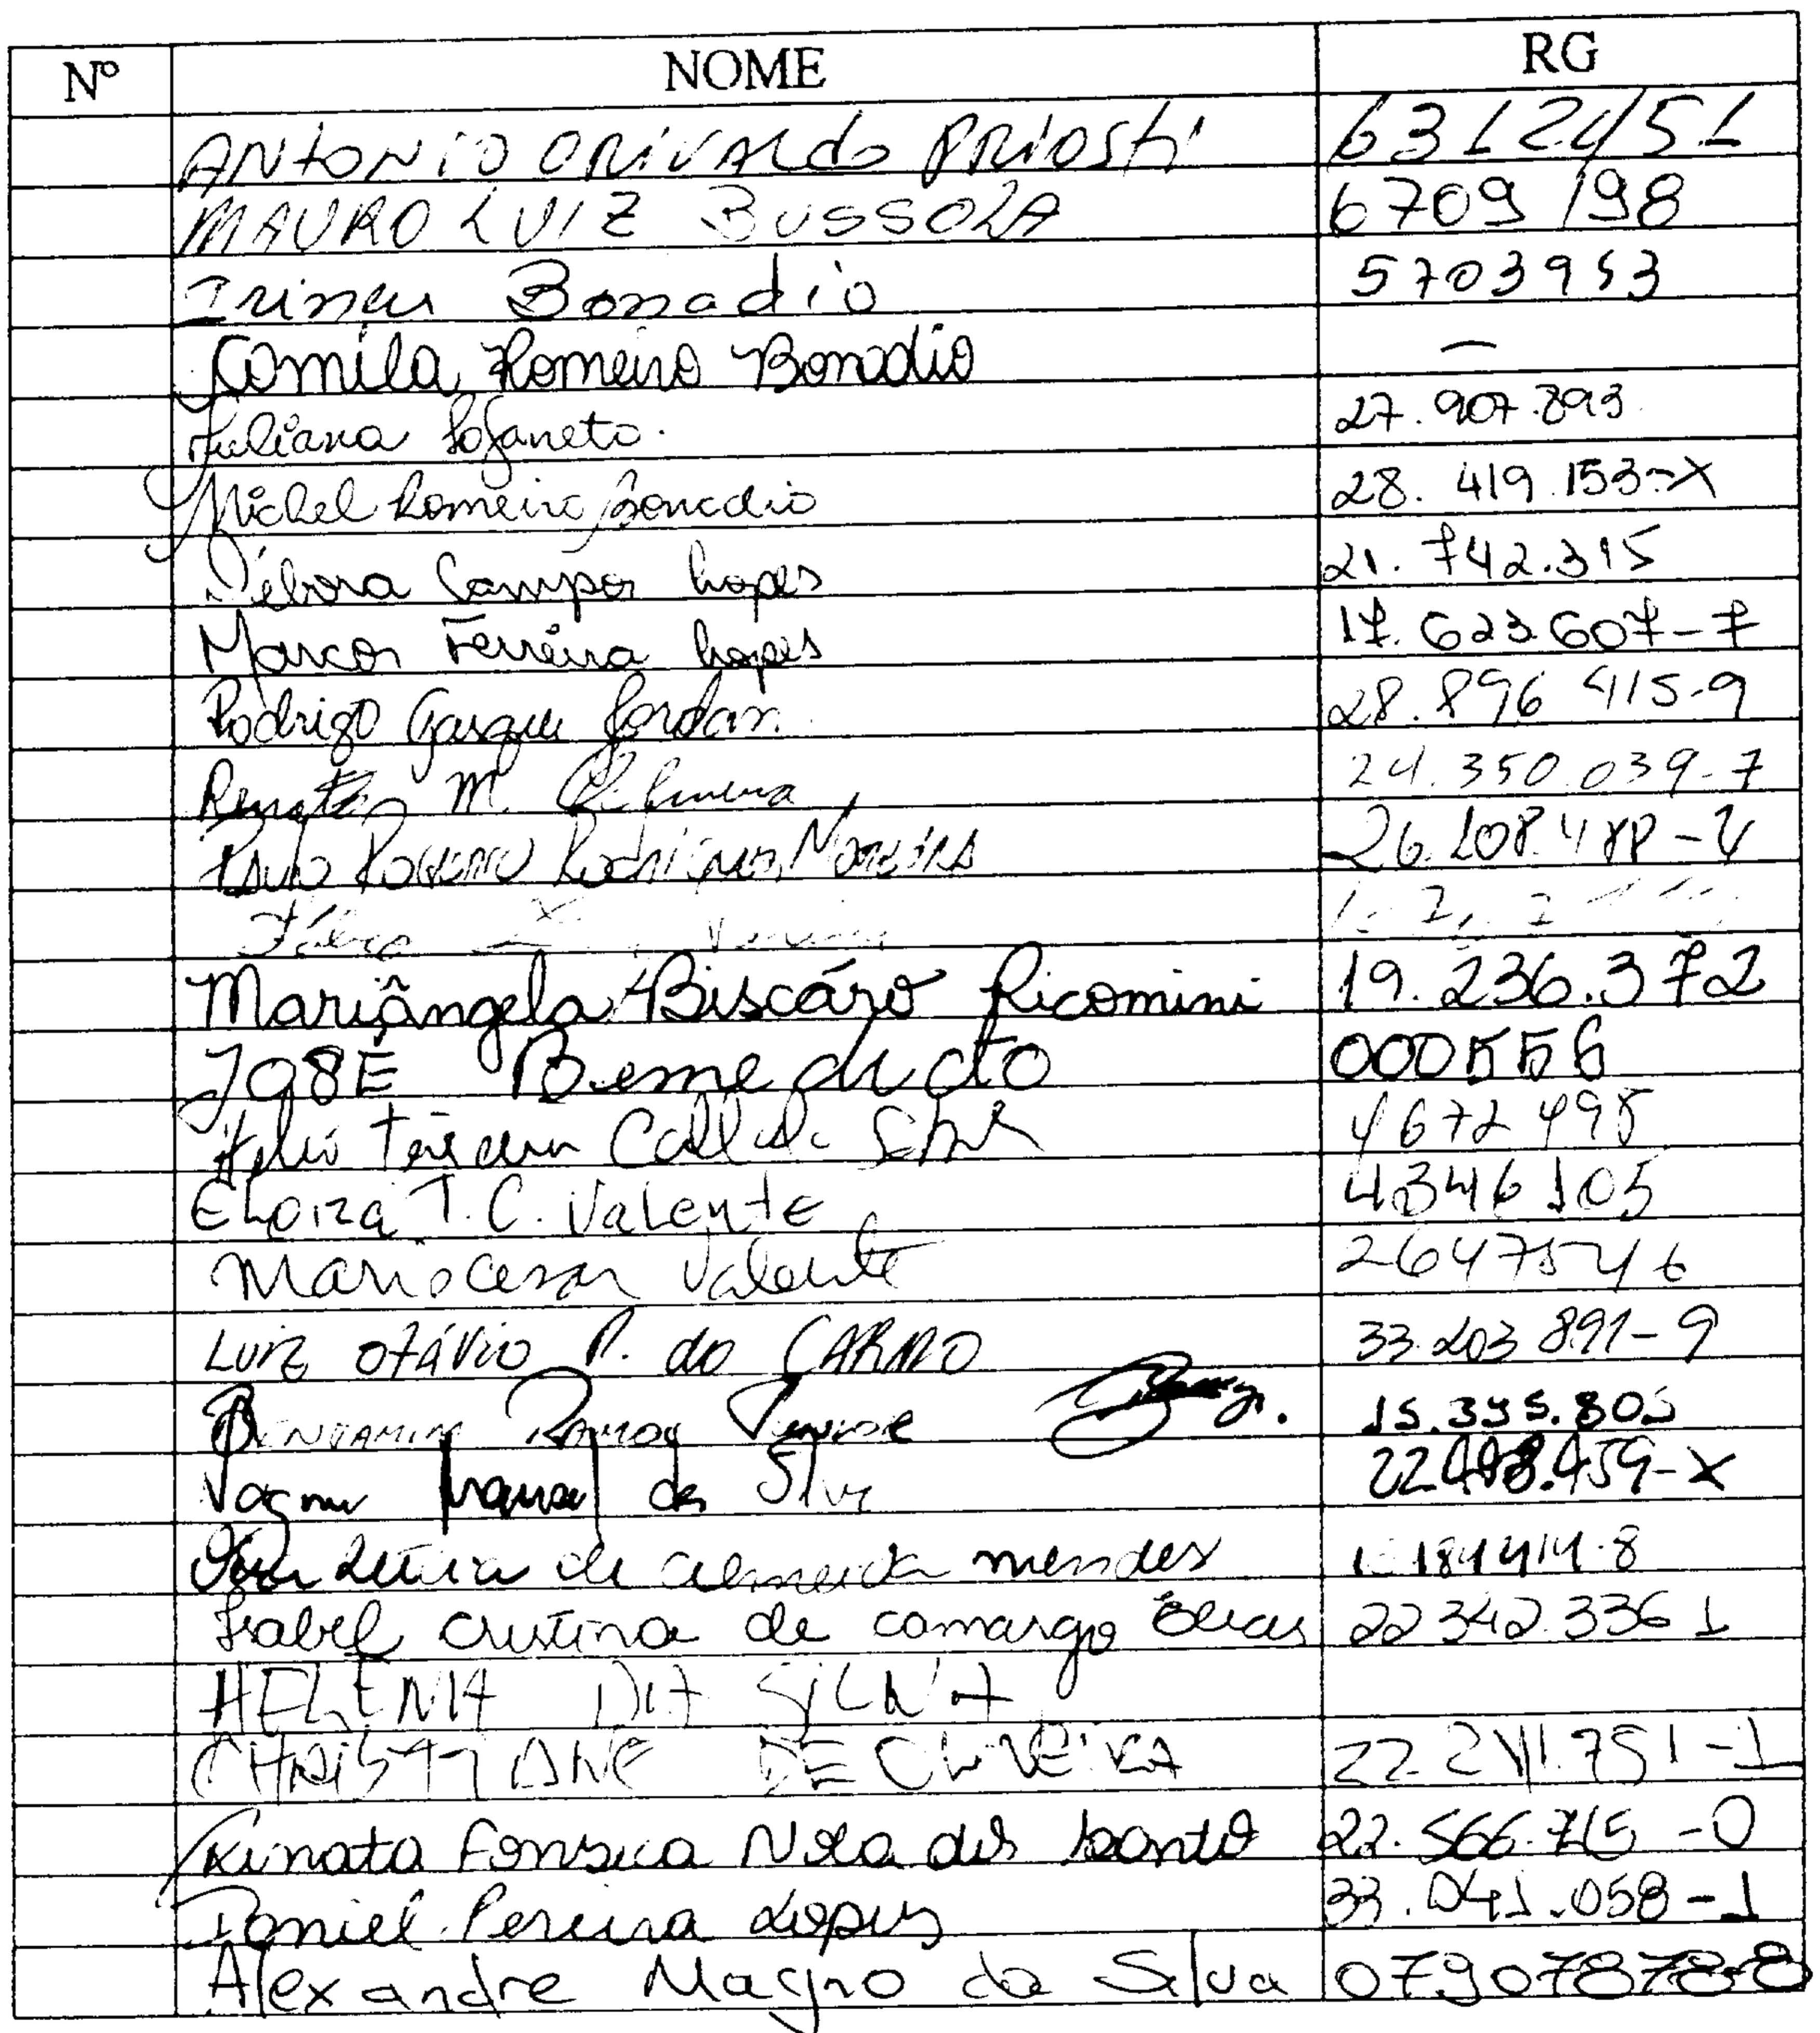 Nº NOME RG
ANTONIO ORIVALdo PRIOSTI 6312451
MAURO LUIZ BUSSOLA 6709198
Irineu Bonadio 5703953
Camila Romeiro Bonadio —
Juliana Lofaneto. 27.907.893
Michel Romeiro Bonadio 28.419.153-X
Débora Campos Lopes 21.742.315
Marcos Ferreira Lopes 17.623.607-7
Rodrigo Gasque Jordan 28.896 415-9
Renata M. 24.350.039-7
Paulo Rodrigues 26.108.488-
Fábio
Mariângela Biscáro Ricomini 19.236.372
JOSÉ Benedicto 000556
Helio 4672498
ELOIZA T.C. VALENTE 4346105
Mario Cesar Valente 26475746
LUIZ OTÁVIO P. do CARMO 33.203 891-9
BENJAMIM RAMOS JUNIOR 15.395.805
Vagner da Silva 22.498.459-X
de almeida mendes
Isabel Cristina de Camargo 22 342.336 1
HELENA DA SILVA
CHRISTIANE DE OLIVEIRA 22.241.751-1
Renata Fonseca dos Santos 22.566.715-0
Daniel Pereira Lopes 33.041.058-1
Alexandre Magno da Silva 07907878-8